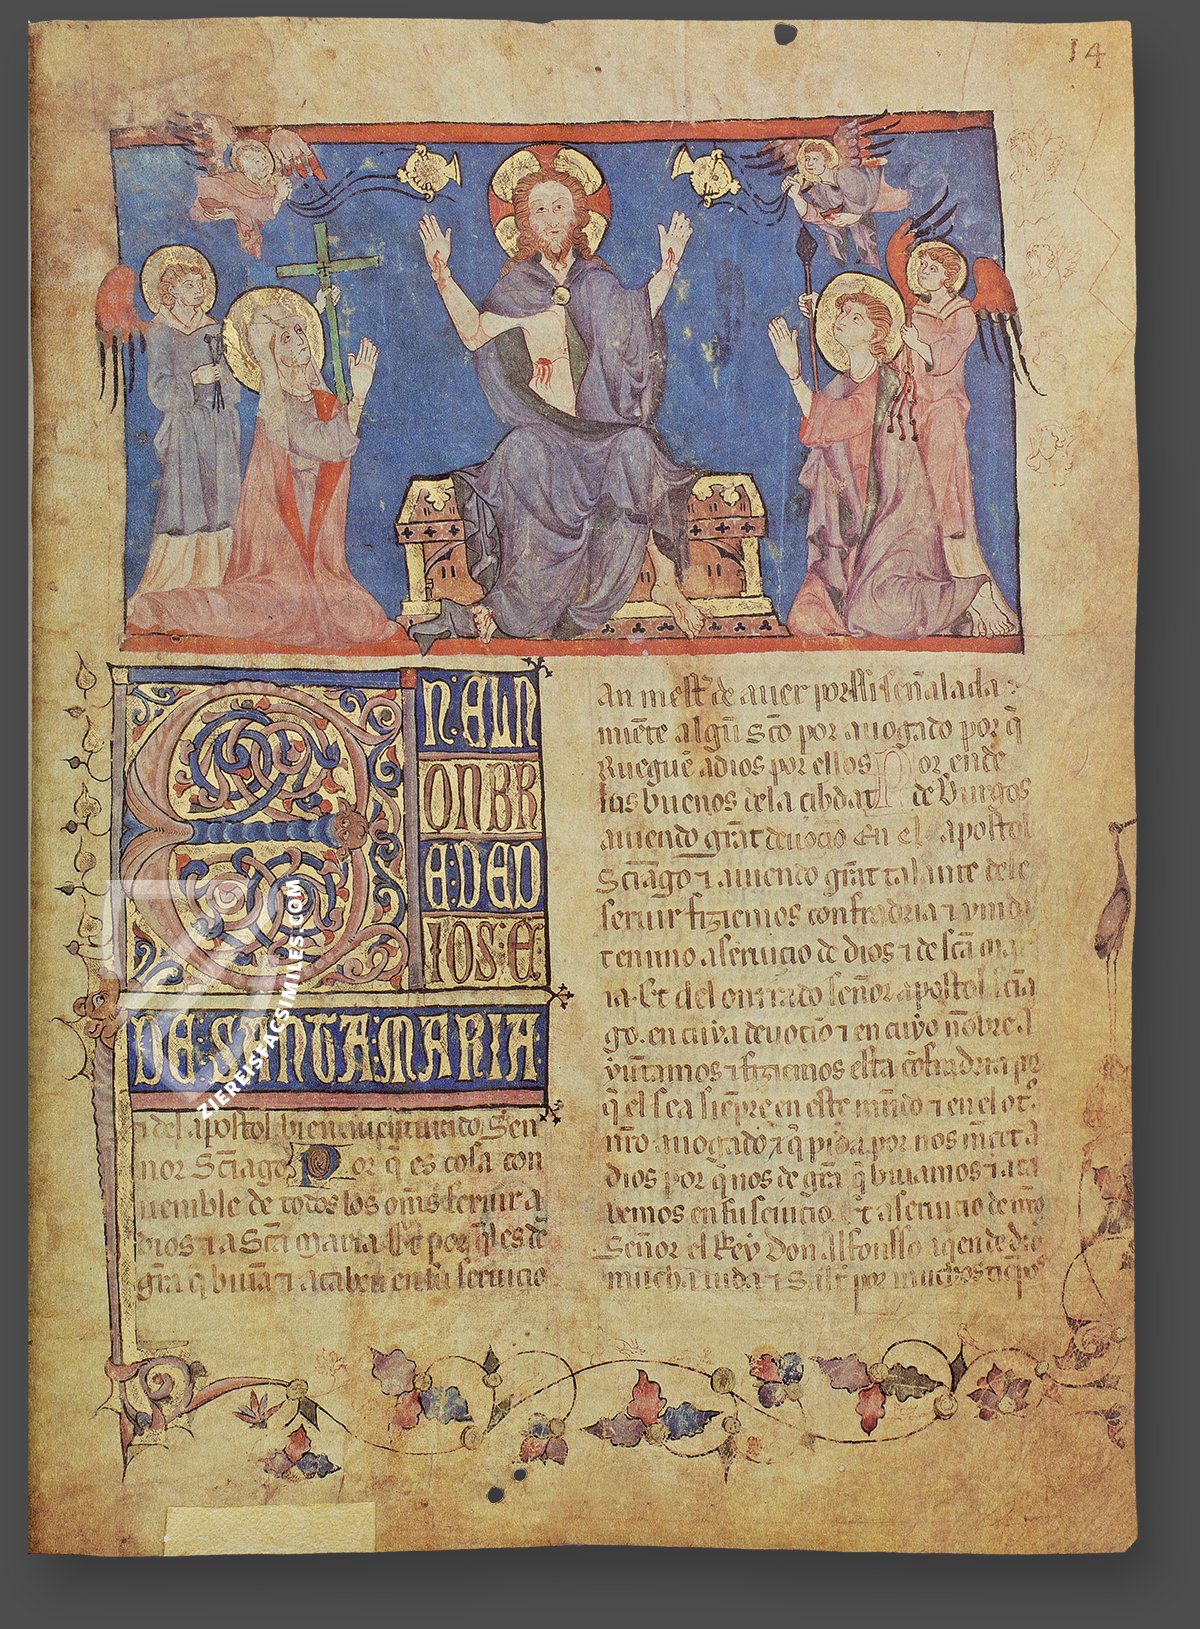 14
EN·EL N
ONBR
E:DE D
IOS·E
DE·SANTA·MARIA·
⁊ del apostol bien auenturado Sen
nor Sc̃iago Por q̃ es cosa con
uenible de todos los om̃s seruir a
dios ⁊ a Sc̃a maria Et por q̃l es de
gr̃a q̃ biuã ⁊ acaben en su seruicio
an mest̃ de auer por ssi señalada
miẽte algũ Sc̃o por auogado por q̃
Ruegue a dios por ellos Por ende
los buenos dela cibdat de Burgos
auiendo grãt deuoçiõ En el apostol
Sc̃iago ⁊ auiendo grãt talante dele
seruir fiziemos confradria ⁊
a seruicio de dios ⁊ de sc̃a mar
ia. Et del onrrado señor apostol sc̃ia
go. en cuya deuoçiõ ⁊ en cuyo nõbre
⁊ fiziemos esta cõfradria por
q̃ el sea siẽpre en este mũdo ⁊ en el ot̃
nr̃o auogado ⁊ q̃ pida por nos m̃cet a
dios por q̃ nos de gr̃a q̃ biuamos ⁊ aca
bemos en su seruicio. Et a seruicio de nr̃o
Señor el Rey Don Alfonsso aq̃en de dios
mucha uida ⁊ Salut por muchos tiẽpos
ZIEREISFACSIMILES.COM